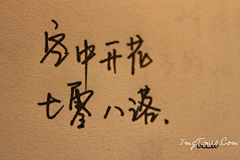 空中开花
七零八落、
ImgTouse.Com